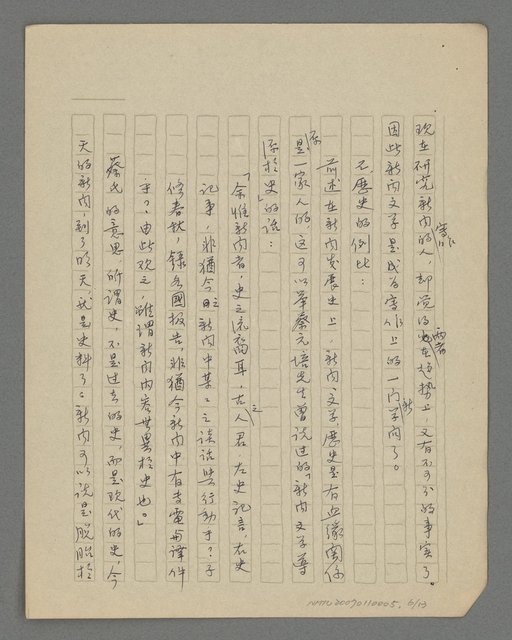 現在研究新聞寫作的人，却覺得兩者在趨勢上又有不可分的事實了。
因此新聞文學是成為寫作上的一門新學問了。
不、歷史的例比：
前述在新聞發展史上，新聞、文學、歷史是有血緣關係
是一家人的，這可以舉蔡元培先生曾說過的「新聞文學導
源於史」的話：
「余惟新聞者，史之流裔耳，古之人君，左史記言，右史
記事，非猶今日新聞中某某之談話與行動乎？孔子
修春秋，錄各國報告，非猶今新聞中有專電與譯件
乎？由此觀之，雖謂新聞內容無異於史也。」
蔡氏的意思，所謂史，不是過去的史，而是現代的史，今
天的新聞，到了明天，就是史料了。新聞可以說是脫胎於
NMTL20070110005. 6/13